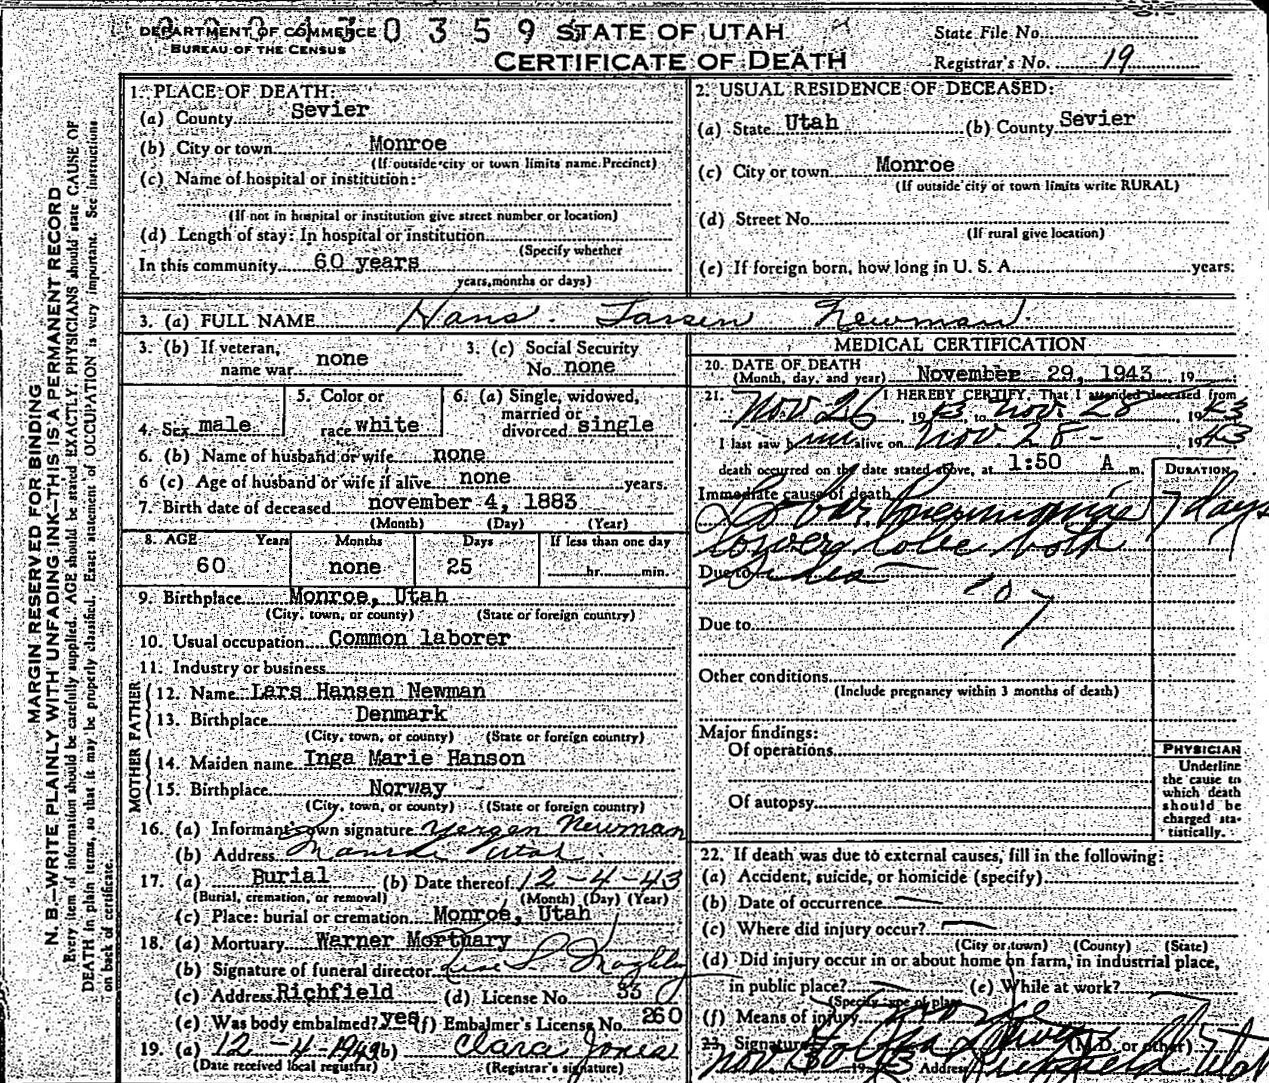 DEPARTMENT OF COMMERCE
BUREAU OF THE CENSUS
0359
STATE OF UTAH
CERTIFICATE OF DEATH
State File No.
Registrar's No. 19
MARGIN RESERVED FOR BINDING
N. B.—WRITE PLAINLY WITH UNFADING INK—THIS IS A PERMANENT RECORD
Every item of information should be carefully supplied. AGE should be stated EXACTLY. PHYSICIANS should state CAUSE OF
DEATH in plain terms, so that it may be properly classified. Exact statement of OCCUPATION is very important. See instructions
on back of certificate.
1. PLACE OF DEATH:
(a) County Sevier
(b) City or town Monroe
(If outside city or town limits name Precinct)
(c) Name of hospital or institution:
(If not in hospital or institution give street number or location)
(d) Length of stay: In hospital or institution
(Specify whether
In this community 60 years
years, months or days)
2. USUAL RESIDENCE OF DECEASED:
(a) State Utah (b) County Sevier
(c) City or town Monroe
(If outside city or town limits write RURAL)
(d) Street No.
(If rural give location)
(e) If foreign born, how long in U. S. A. years.
3. (a) FULL NAME Hans Larsen Newman
3. (b) If veteran, name war none
3. (c) Social Security No. none
4. Sex male
5. Color or race white
6. (a) Single, widowed, married or divorced single
6. (b) Name of husband or wife none
6 (c) Age of husband or wife if alive none years.
7. Birth date of deceased november 4, 1883
(Month) (Day) (Year)
8. AGE Years Months Days If less than one day
60 none 25 hr. min.
9. Birthplace Monroe, Utah
(City, town, or county) (State or foreign country)
10. Usual occupation Common laborer
11. Industry or business
FATHER
12. Name Lars Hansen Newman
13. Birthplace Denmark
(City, town, or county) (State or foreign country)
MOTHER
14. Maiden name Inga Marie Hanson
15. Birthplace Norway
(City, town, or county) (State or foreign country)
16. (a) Informant's own signature Yergen Newman
(b) Address Utah
17. (a) Burial (b) Date thereof 12-4-43
(Burial, cremation, or removal) (Month) (Day) (Year)
(c) Place: burial or cremation Monroe, Utah
18. (a) Mortuary Warner Mortuary
(b) Signature of funeral director
(c) Address Richfield (d) License No. 33
(e) Was body embalmed? yes (f) Embalmer's License No. 260
19. (a) 12-4-194 (b) Clara Jones
(Date received local registrar) (Registrar's signature)
MEDICAL CERTIFICATION
20. DATE OF DEATH
(Month, day, and year) November 29, 1943 19
21. I HEREBY CERTIFY, That I attended deceased from
Nov 26 1943 to Nov. 28 1943
I last saw him alive on Nov. 28- 1943
death occurred on the date stated above, at 1:50 A m.
DURATION
Immediate cause of death
Lobar Pneumonia 7 days
Lower lobe both
Due to sides
107
Due to
Other conditions
(Include pregnancy within 3 months of death)
Major findings:
Of operations
Of autopsy
PHYSICIAN
Underline
the cause to
which death
should be
charged sta-
tistically.
22. If death was due to external causes, fill in the following:
(a) Accident, suicide, or homicide (specify)
(b) Date of occurrence
(c) Where did injury occur?
(City or town) (County) (State)
(d) Did injury occur in or about home on farm, in industrial place,
in public place? (e) While at work?
(Specify type of place)
(f) Means of injury
23. Signature (M.D. or other)
Nov. 30 1943 Address Richfield Utah